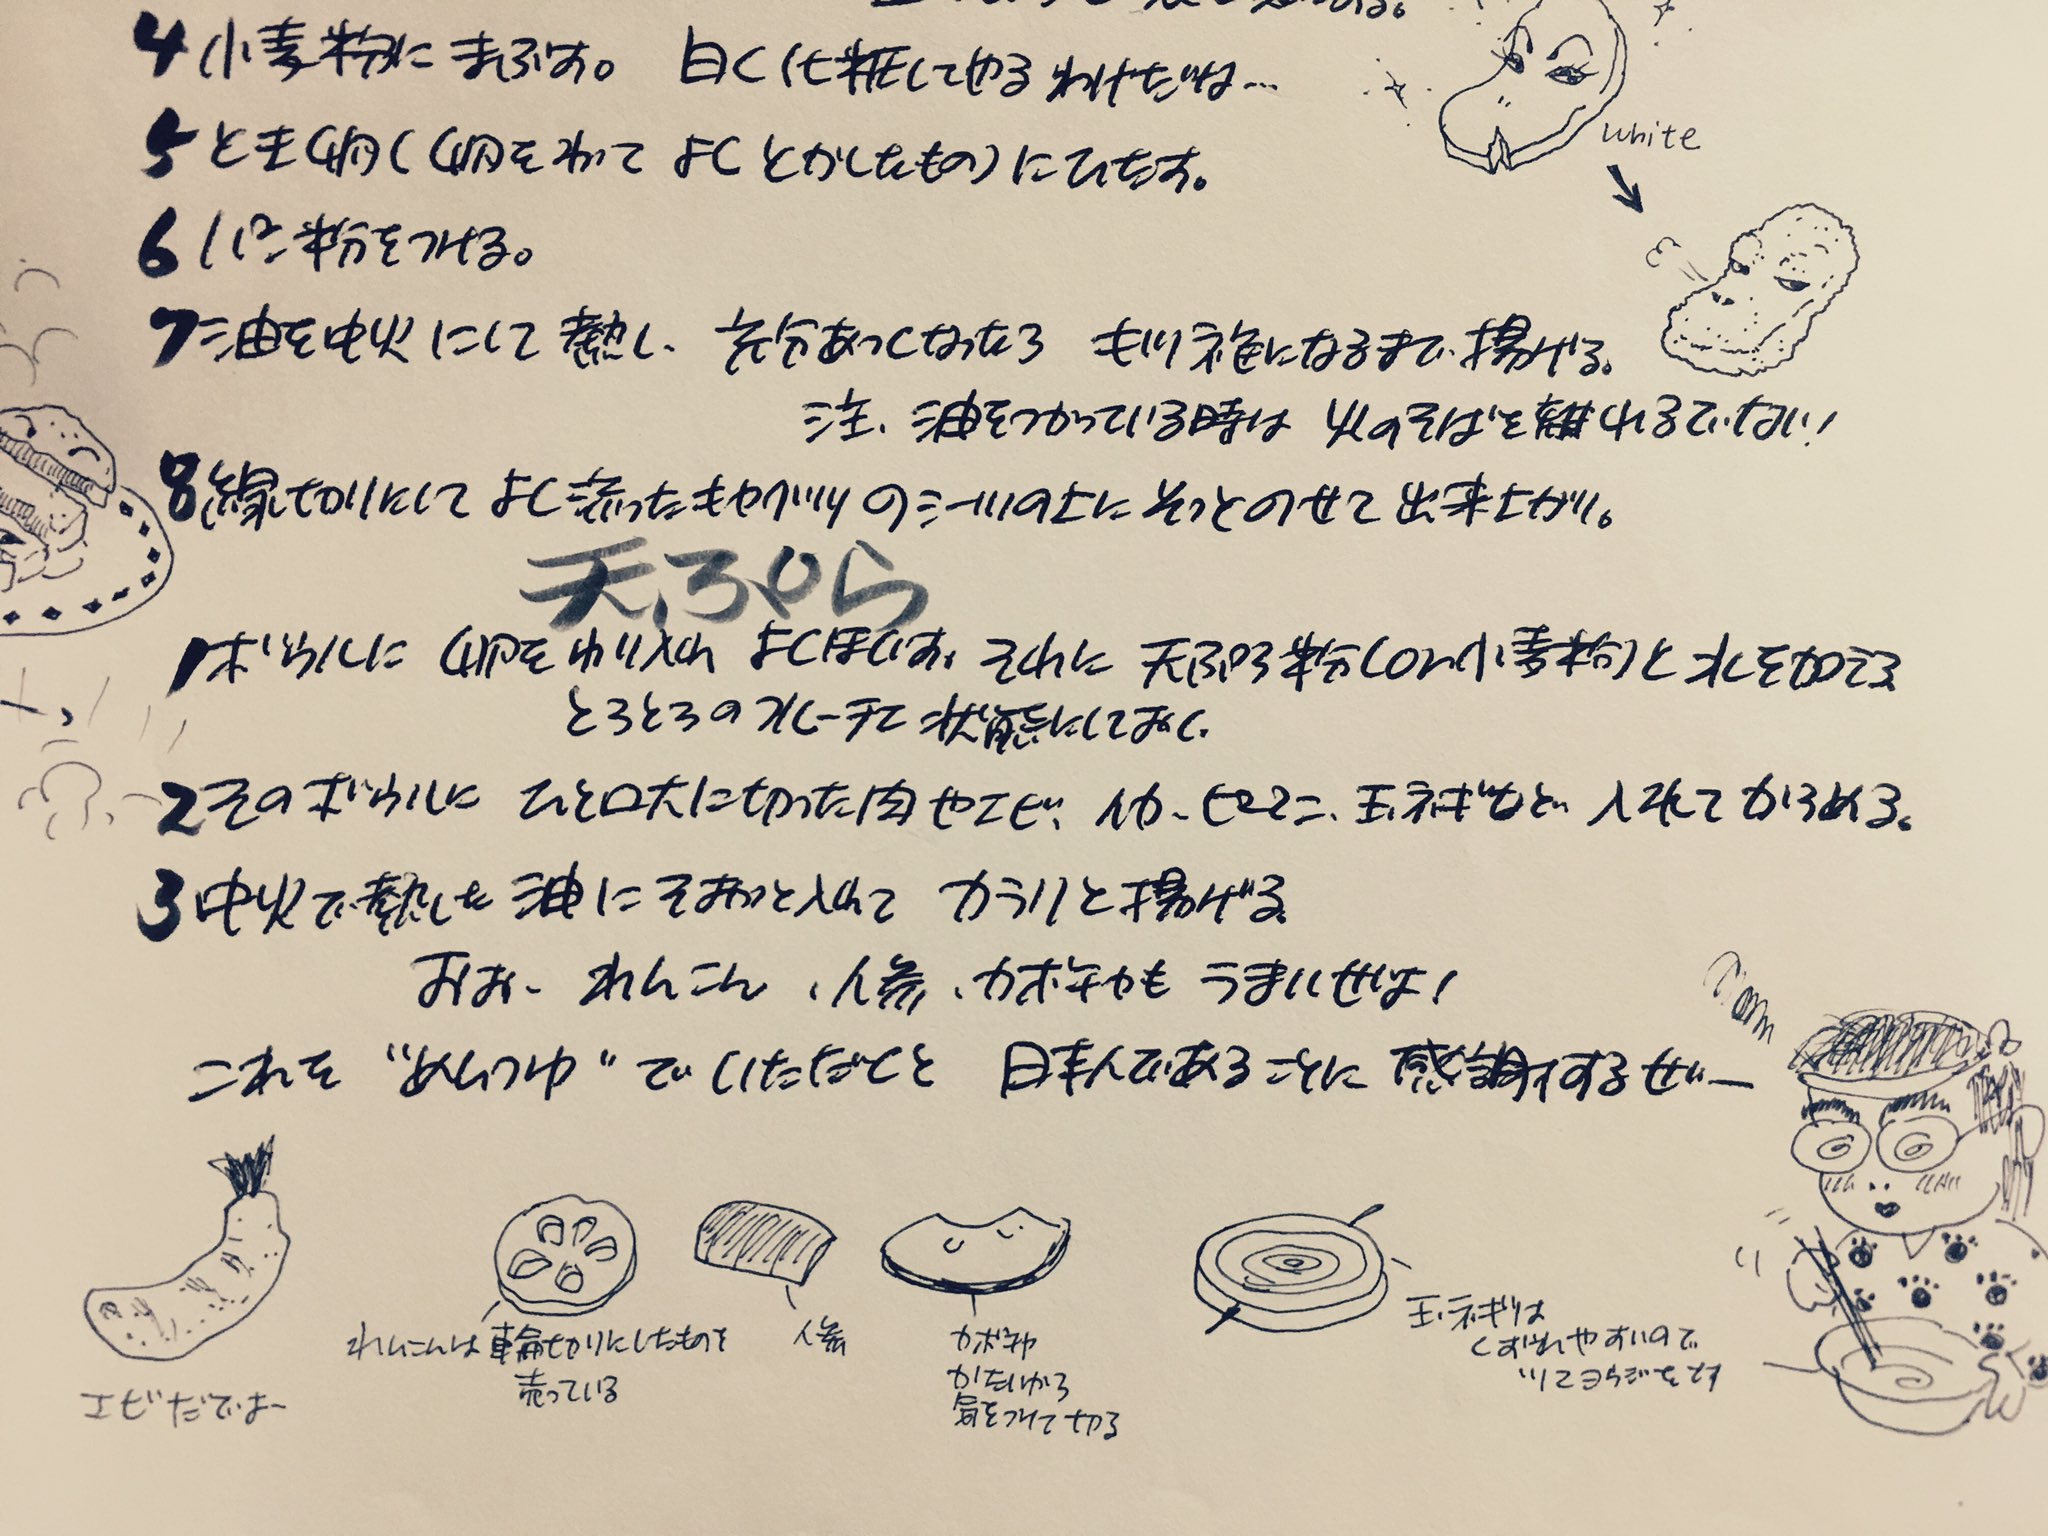 4 小麦粉にまぶす。 白く化粧してやるわけだね…
white
5 とき卵(卵をわってよくとかしたもの)にひたす。
6 パン粉をつける。
7 油を中火にして熱し、充分あつくなったらきつね色になるまで揚げる。
注、油をつかっている時は火のそばを離れるでない!
8 線切りにしてよく洗ったキャベツのシールの上にそっとのせて出来上がり。
天ぷら
1 ボウルに卵をわり入れよくほぐす。それに天ぷら粉(or小麦粉)と水を加える
とろとろの水ーって状態にしておく。
2 そのボウルにひと口大に切った肉やエビ、イカ、ピーマン、玉ネギなど入れてからめる。
3 中火で熱した油にそおっと入れてカラリと揚げる
おおー れんこん、人参、カボチャもうまいぜよ!
これを“めんつゆ”でいただくと 日本人であることに感謝するぜー
エビだでよー
れんこんは輪切りにしたものを
売っている
人参
カボチャ
かたいから
気をつけて切る
玉ネギは
くずれやすいので
ツマヨウジをさす